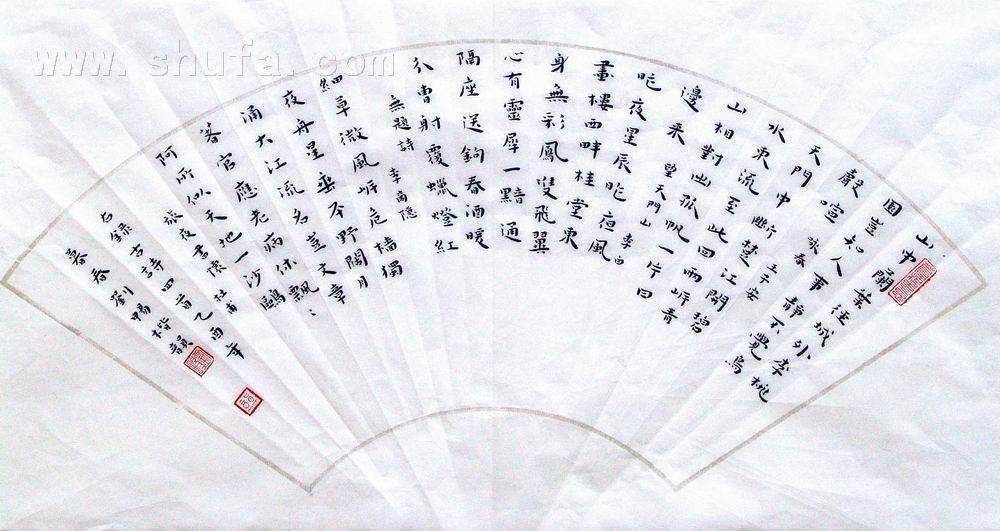 www.shufa.com
山中蘭葉徑城外李桃
園豈知人事靜不覺鳥
聲喧 咏春 王子安
天門中斷楚江開碧
水東流至此回兩岸青
山相對出孤帆一片日
邊來 望天門山 李白
昨夜星辰昨夜風
畫樓西畔桂堂東
身無彩鳳雙飛翼
心有靈犀一點通
隔座送鉤春酒暖
分曹射覆蠟燈紅
無題詩 李商隱
細草微風岸危檣獨
夜舟星垂平野闊月
涌大江流名豈文章
著官應老病休飄〻
何所似天地一沙鷗
旅夜書懷 杜甫
右錄古詩四首乙酉年
暮春劉暢楷韻